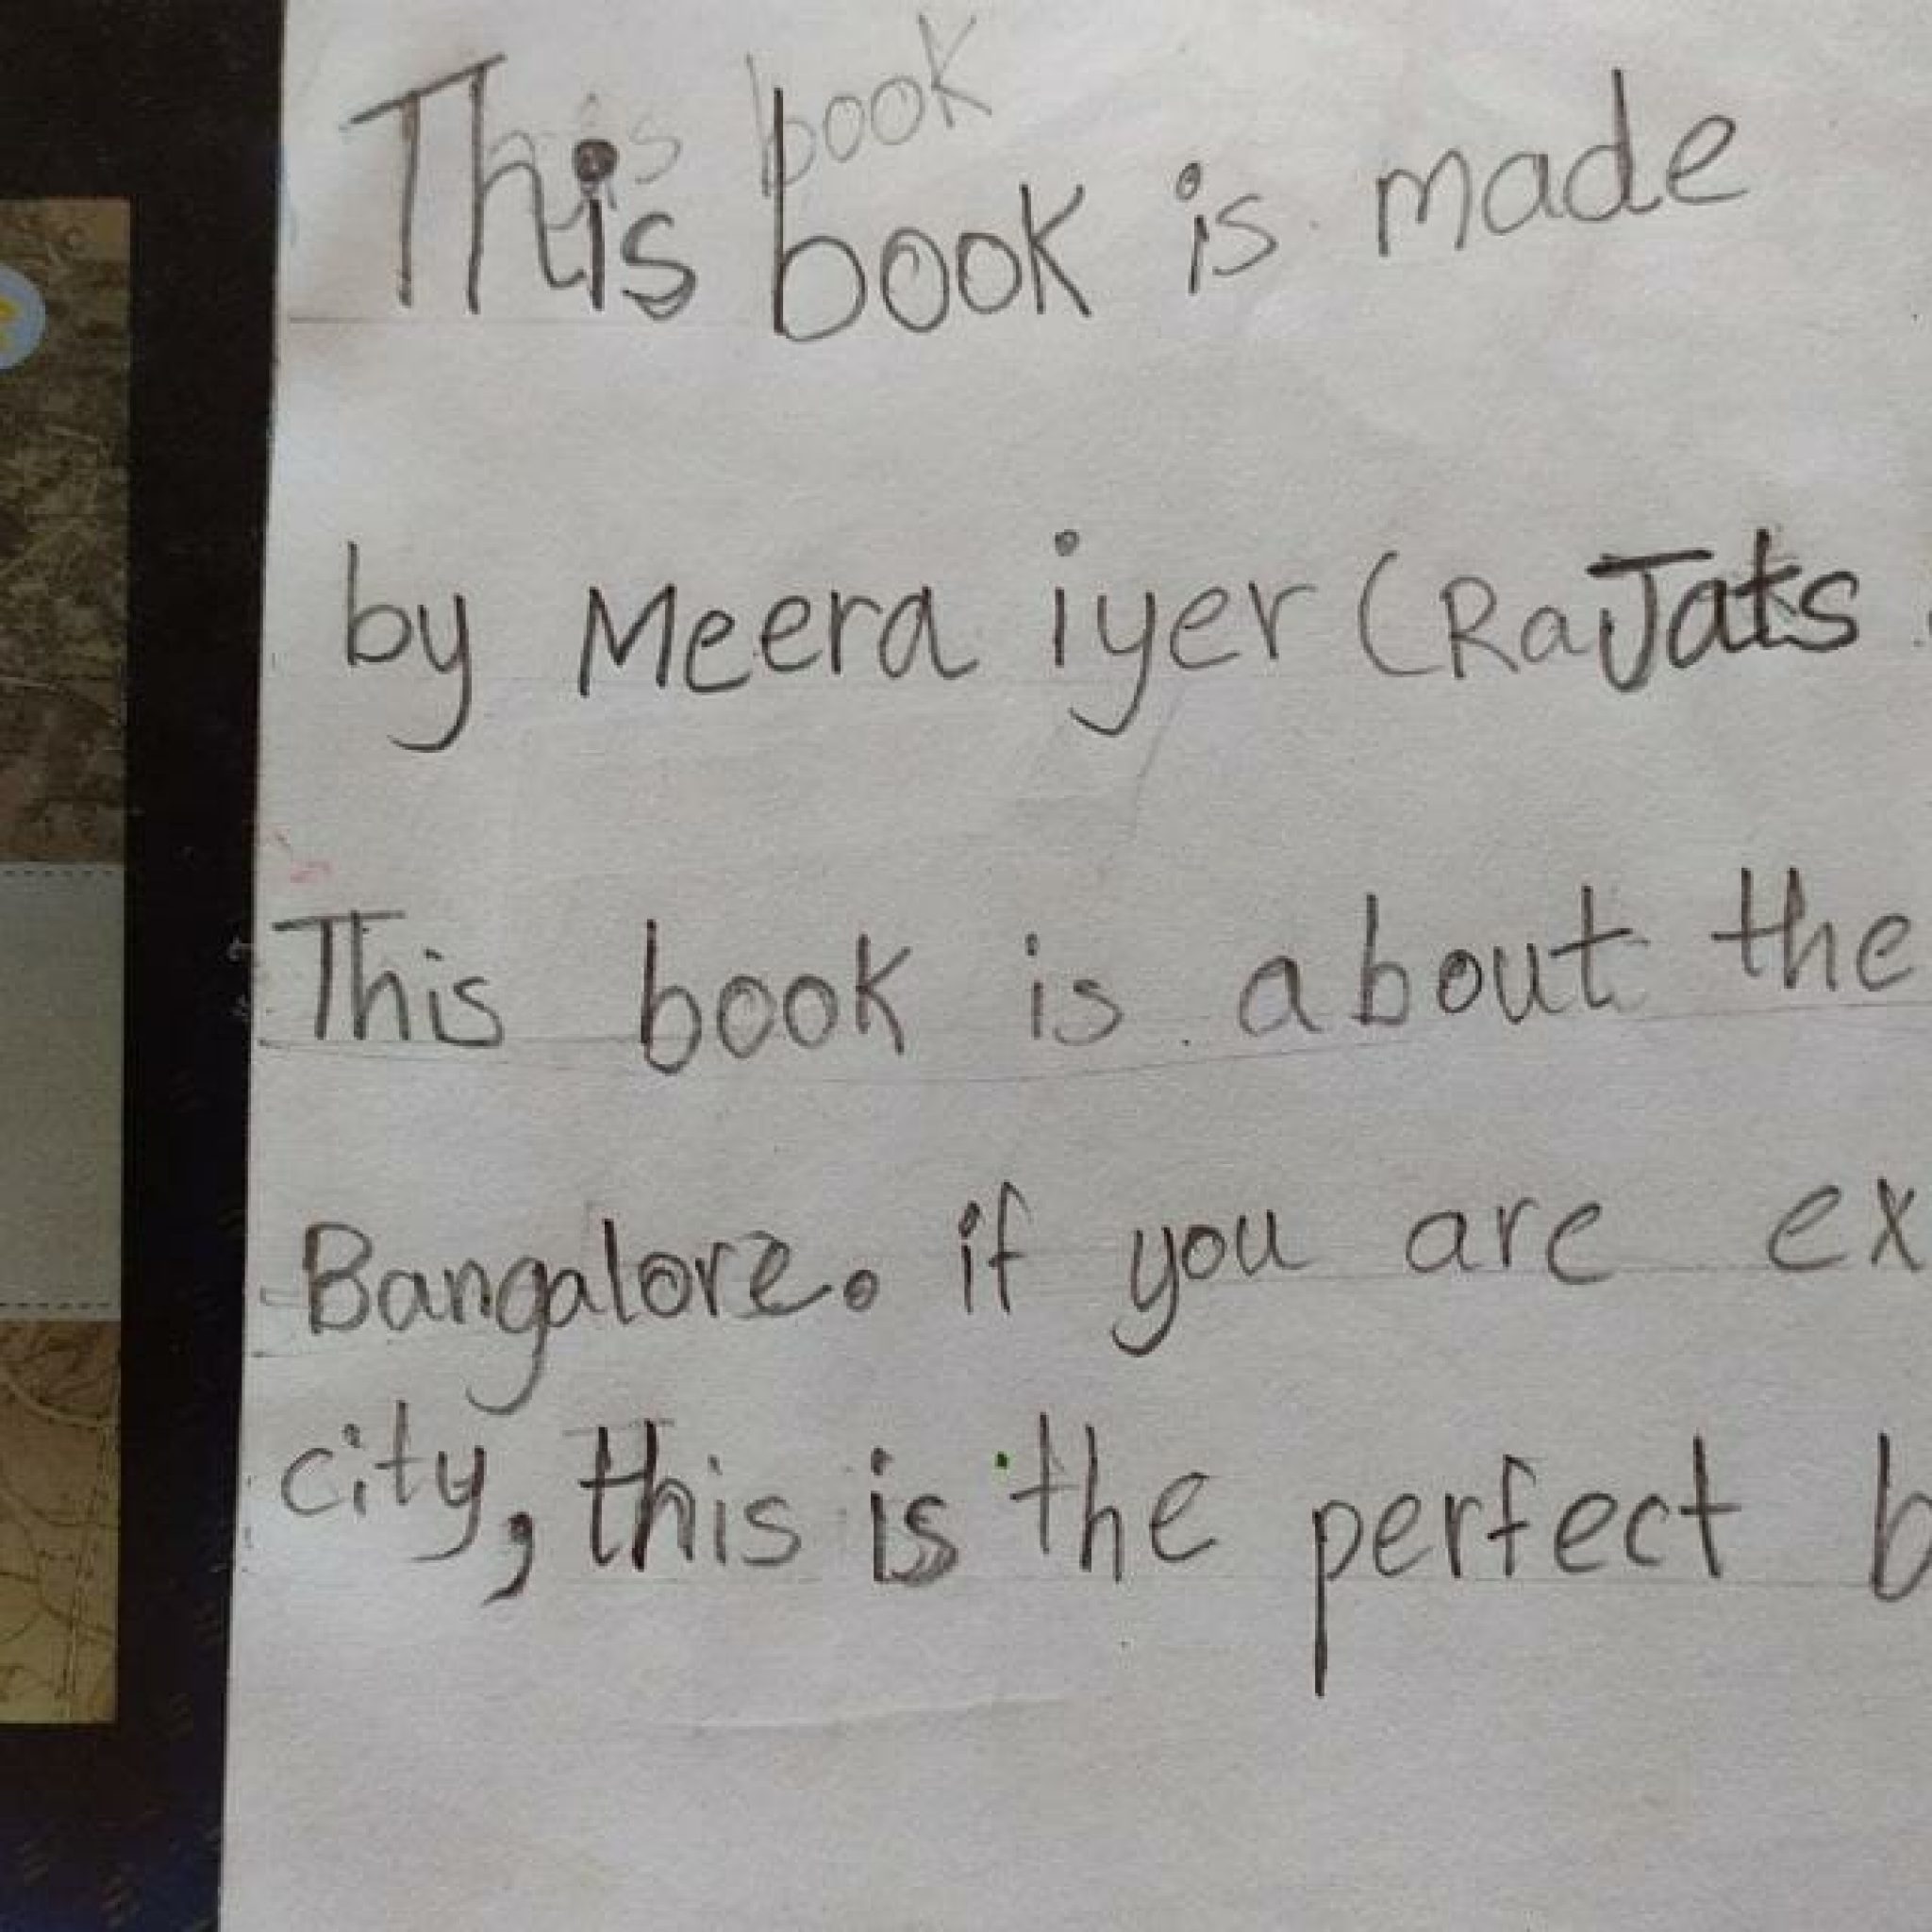 This book
This book is made
by Meera iyer (RaJats
This book is about the
Bangalore. if you are ex
city, this is the perfect b